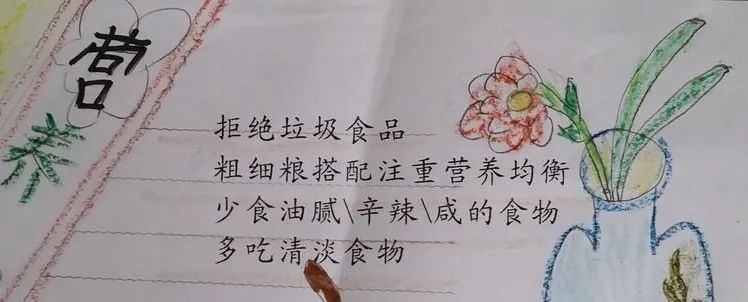 营养
拒绝垃圾食品
粗细粮搭配注重营养均衡
少食油腻\辛辣\咸的食物
多吃清淡食物